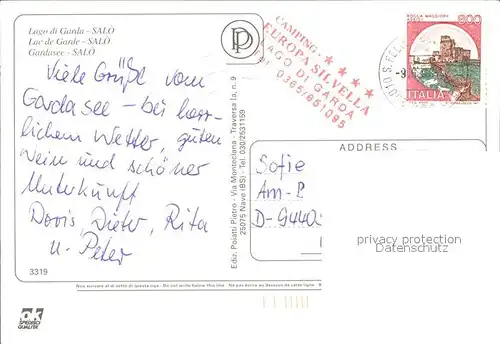 Lago di Garda - SALÒ
Lac de Garde - SALÒ
Gardasee - SALÒ
Viele Grüße vom
Gardasee – bei herr-
lichem Wetter, guten
Wein und schöner
Unterkunft
Doris, Dieter, Rita
u. Peter
3319
SPEDISCI QUALITÀ
Ediz. Poiatti Pietro - Via Monteclana - Traversa Ia, n. 9
25075 Nave (BS) - Tel. 030/2631159
CAMPING ★★★★
EUROPA SILVELLA
LAGO DI GARDA
0365/651095
ROCCA MAGGIORE
ASSISI
800
ITALIA
ADDRESS
Sofie
Am
D-9440
privacy protection
Datenschutz
Non scrivere al di sotto di questa riga - Do not write below this line - Ne pas écrire au dessous de cette ligne